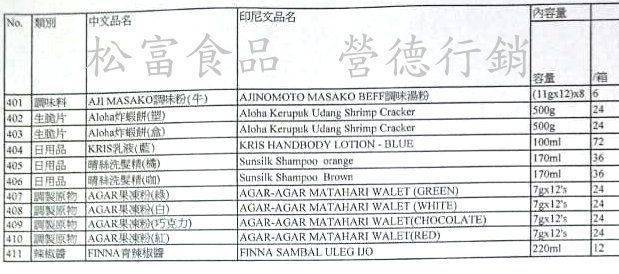 No. 類別 中文品名 印尼文品名 內容量
容量 /箱
松富食品 營德行銷
401 調味料 AJI MASAKO調味粉(牛) AJINOMOTO MASAKO BEFF調味湯粉 (11gx12)x8 6
402 生脆片 Aloha炸蝦餅(塑) Aloha Kerupuk Udang Shrimp Cracker 500g 24
403 生脆片 Aloha炸蝦餅(盒) Aloha Kerupuk Udang Shrimp Cracker 500g 24
404 日用品 KRIS乳液(藍) KRIS HANDBODY LOTION - BLUE 100ml 72
405 日用品 晴絲洗髮精(橘) Sunsilk Shampoo orange 170ml 36
406 日用品 晴絲洗髮精(咖) Sunsilk Shampoo Brown 170ml 36
407 調製原物 AGAR果凍粉(綠) AGAR-AGAR MATAHARI WALET (GREEN) 7gx12's 24
408 調製原物 AGAR果凍粉(白) AGAR-AGAR MATAHARI WALET (WHITE) 7gx12's 24
409 調製原物 AGAR果凍粉(巧克力) AGAR-AGAR MATAHARI WALET(CHOCOLATE) 7gx12's 24
410 調製原物 AGAR果凍粉(紅) AGAR-AGAR MATAHARI WALET(RED) 7gx12's 24
411 辣椒醬 FINNA青辣椒醬 FINNA SAMBAL ULEG IJO 220ml 12